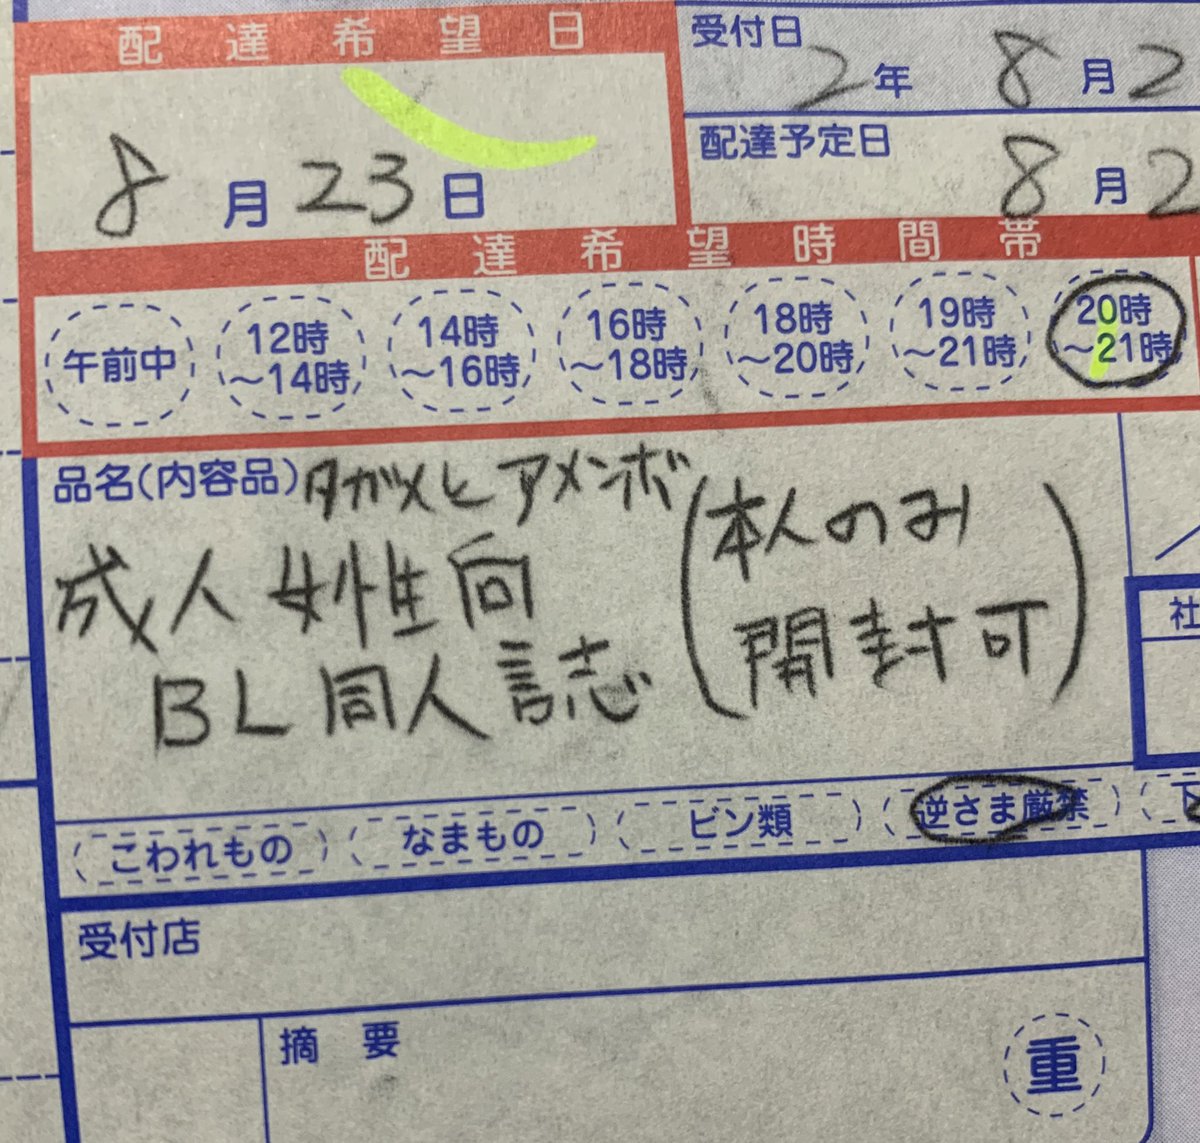 配達希望日
8月23日
受付日
2年8月2
配達予定日
8月2
配達希望時間帯
午前中
12時～14時
14時～16時
16時～18時
18時～20時
19時～21時
20時～21時
品名(内容品)タガメとアメンボ
成人女性向
BL同人誌
(本人のみ
開封可)
社
こわれもの
なまもの
ビン類
逆さま厳禁
下
受付店
摘要
重